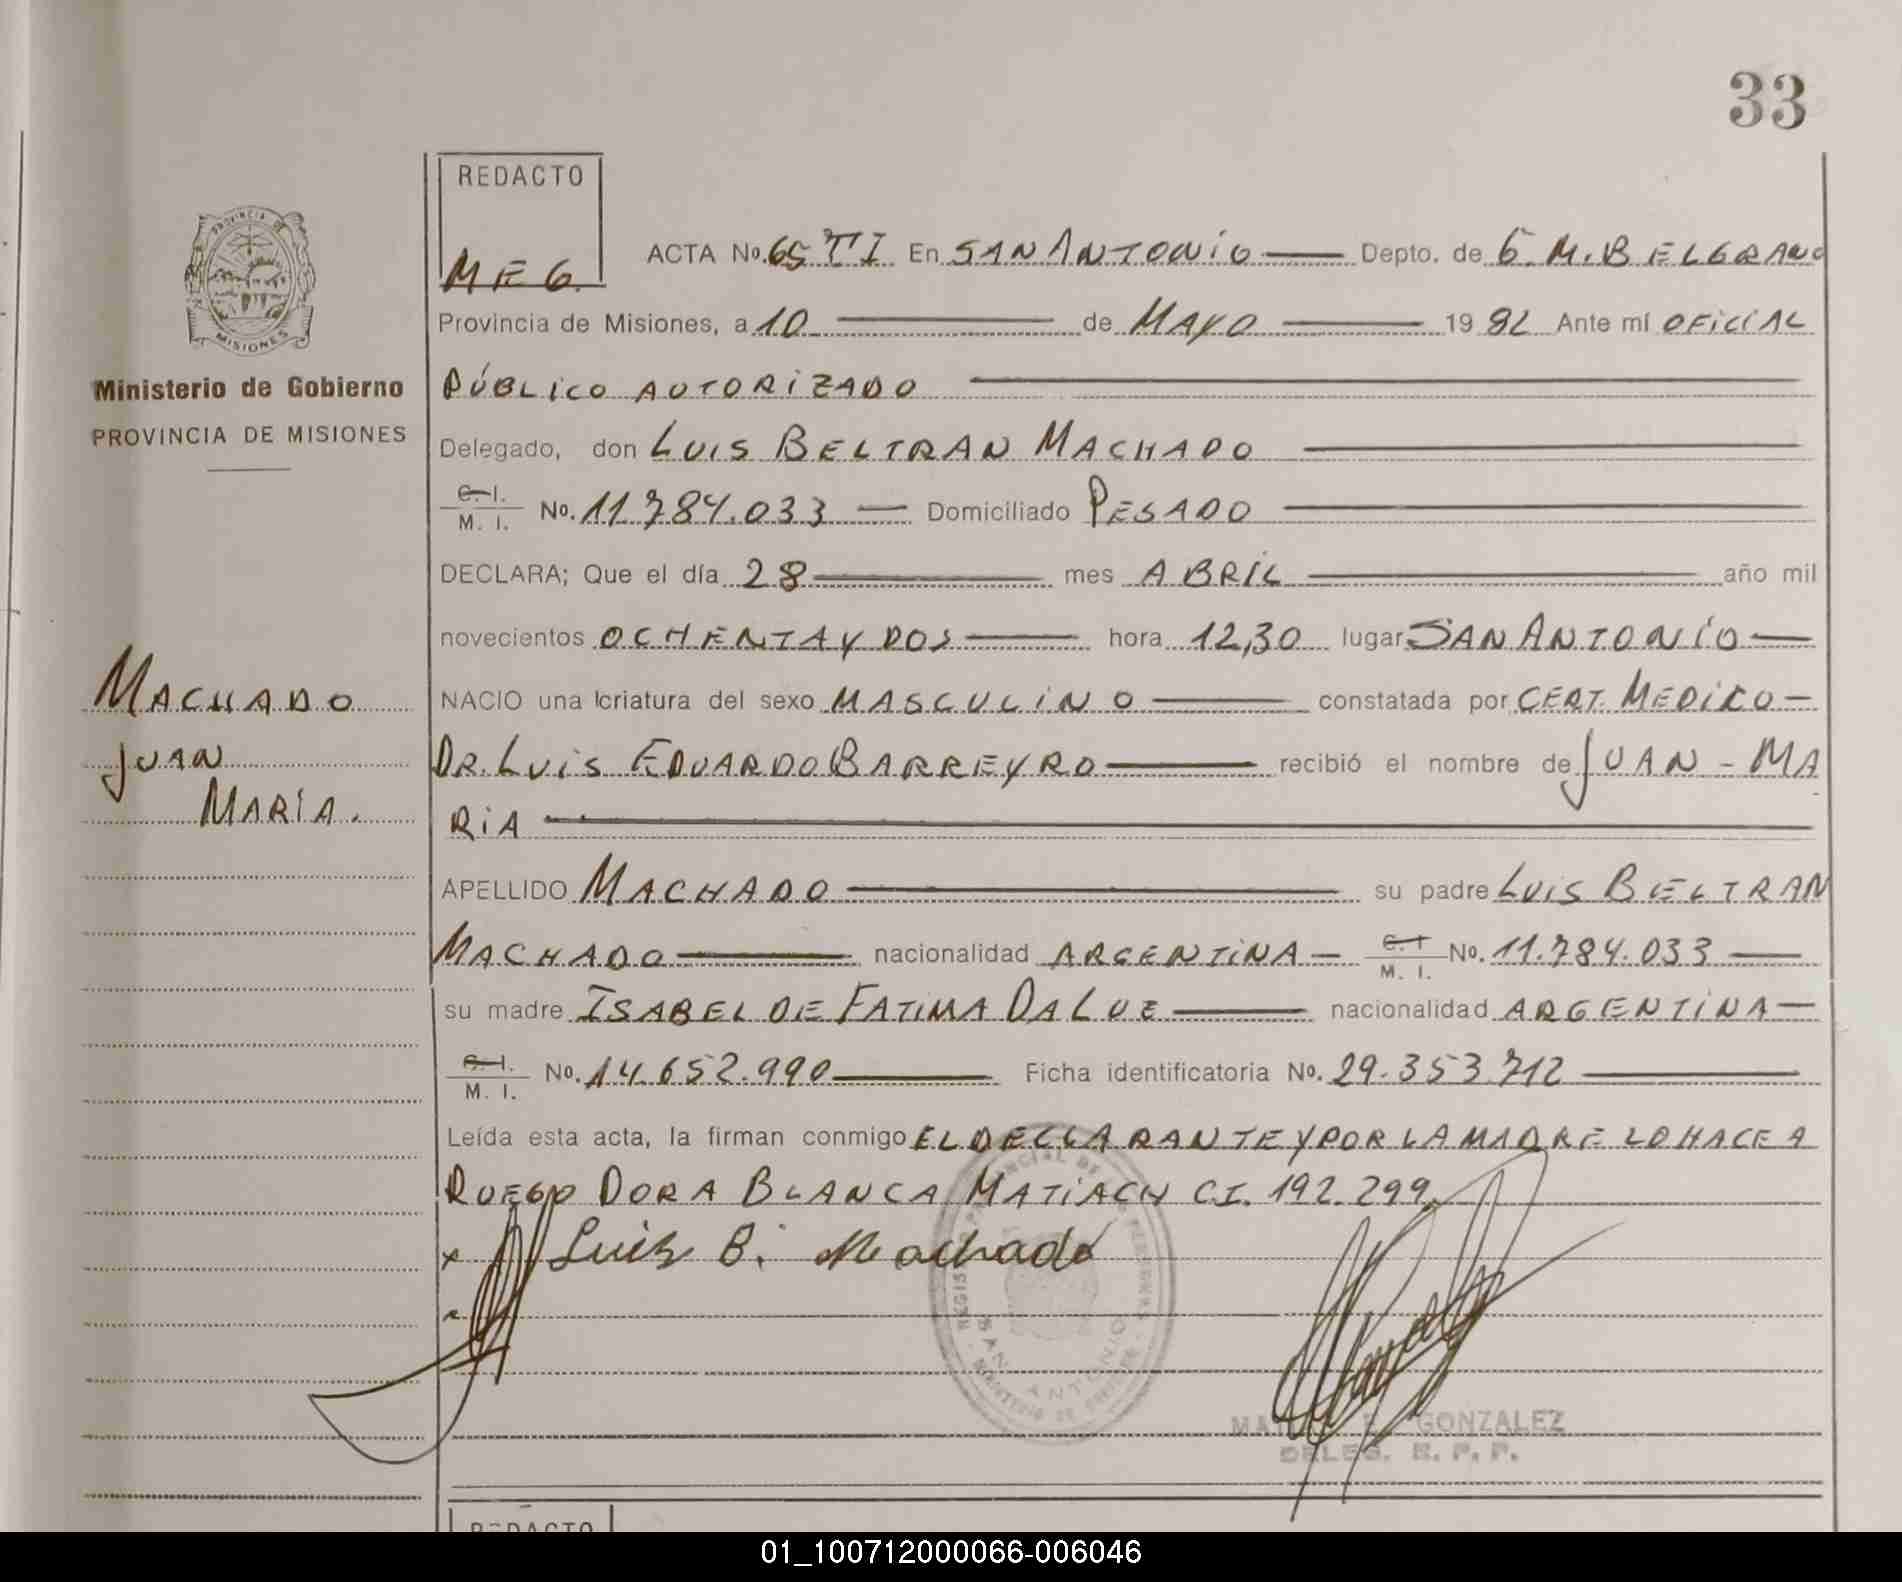 33
REDACTO
M E G.
ACTA No. 65 TI En SAN ANTONIO Depto. de G. M. BELGRANO
Provincia de Misiones, a 10 de MAYO 19 82 Ante mí OFICIAL
PÚBLICO AUTORIZADO
Delegado, don LUIS BELTRAN MACHADO
C. I.
M. I. No. 11.784.033 Domiciliado PESADO
DECLARA; Que el día 28 mes ABRIL año mil
novecientos OCHENTA Y DOS hora 12,30 lugar SAN ANTONIO
NACIO una criatura del sexo MASCULINO constatada por CERT. MEDICO
DR. LUIS EDUARDO BARREYRO recibió el nombre de JUAN - MA
RIA
APELLIDO MACHADO su padre LUIS BELTRAN
MACHADO nacionalidad ARGENTINA C. I. M. I. No. 11.784.033
su madre ISABEL DE FATIMA DA LUZ nacionalidad ARGENTINA
C. I.
M. I. No. 14.652.990 Ficha identificatoria No. 29.353.712
Leída esta acta, la firman conmigo EL DECLARANTE Y POR LA MADRE LO HACE A
RUEGO DORA BLANCA MATIACH C.I. 192.299.
x Luis B. Machado
PROVINCIA DE
MISIONES
Ministerio de Gobierno
PROVINCIA DE MISIONES
MACHADO
JUAN
MARÍA.
SAN ANTONIO
GONZALEZ
DELEG. R. P. P.
REDACTO
01_100712000066-006046